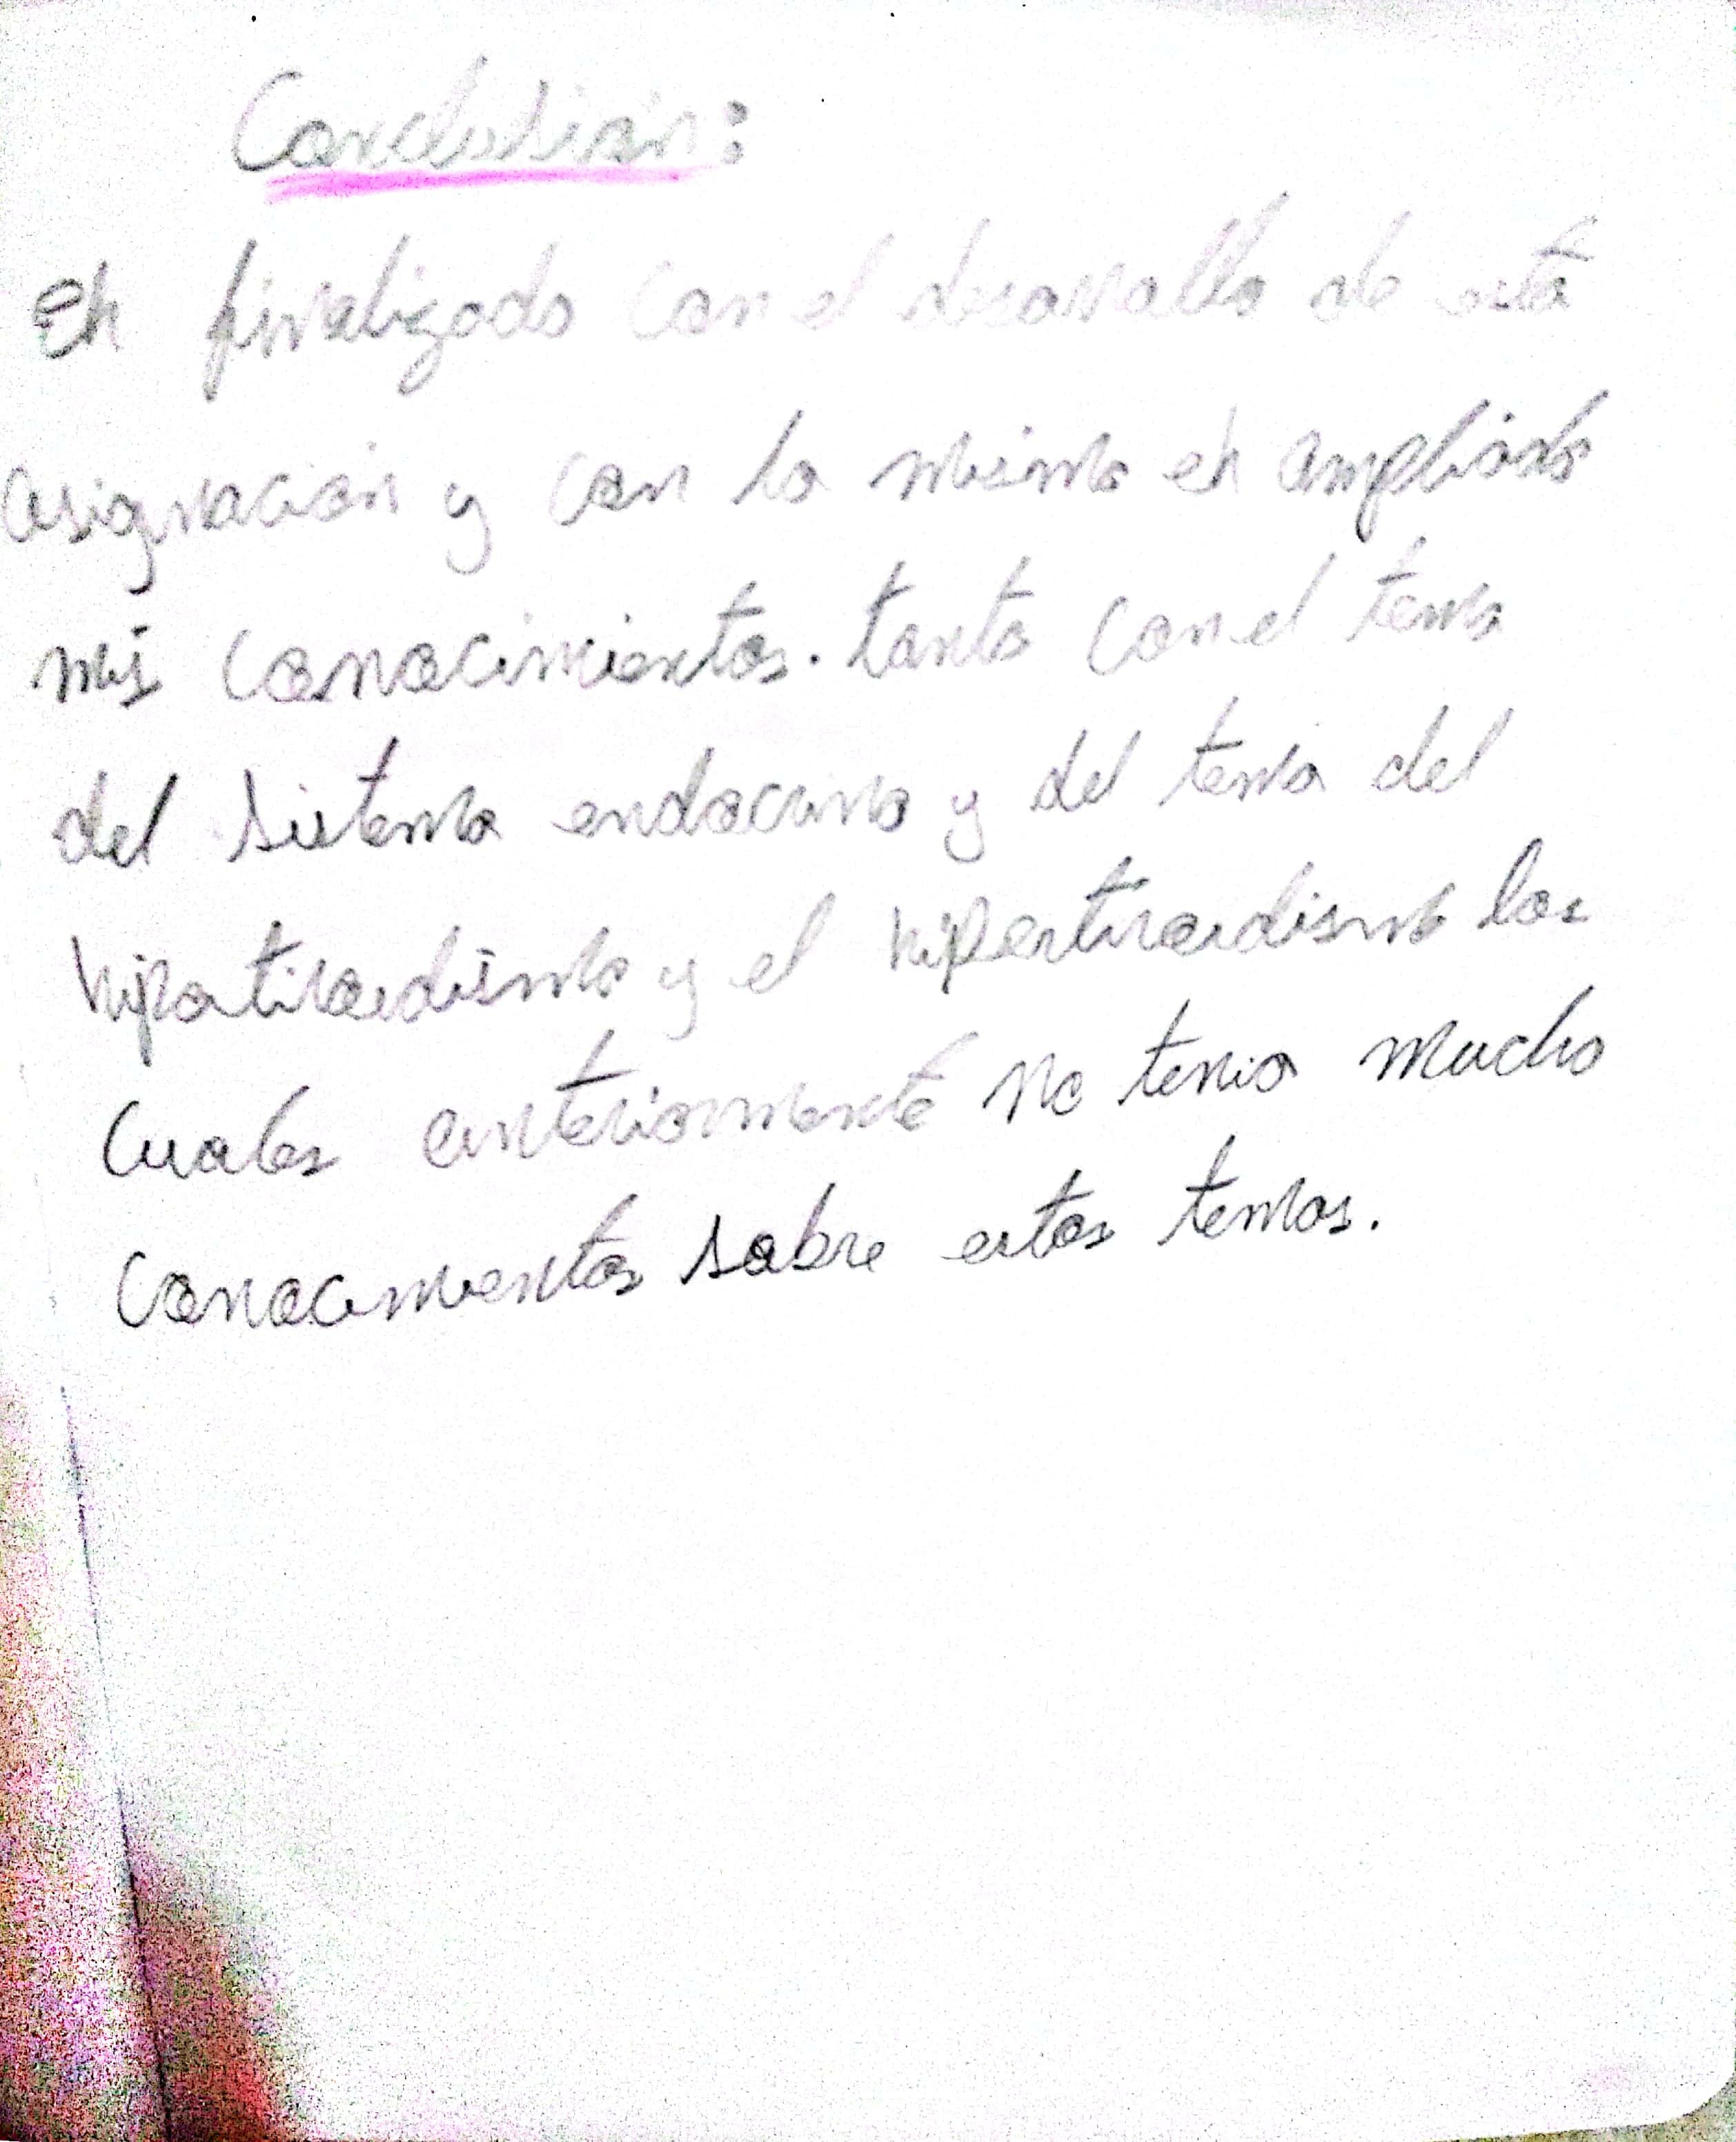 Conclusión:
Eh finalizado con el desarrollo de está
asignación y con la misma eh ampliado
mis conocimientos. tanto con el tema
del sistema endocrino y del tema del
hipotiroidismo y el hipertiroidismo los
cuales anteriormente no tenia mucho
conocimientos sobre estos temas.